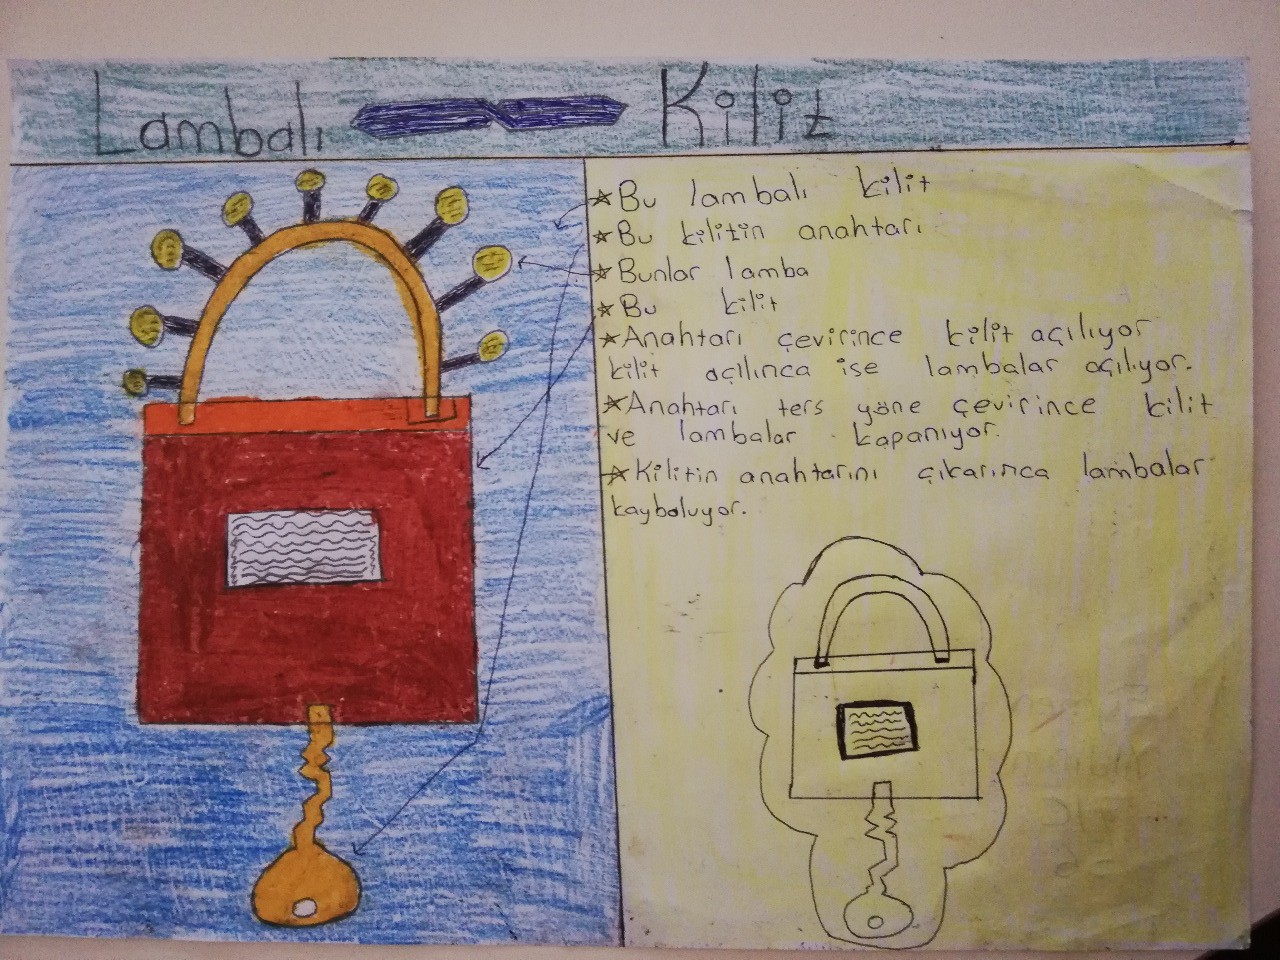 Lambalı Kilit
Bu lambalı kilit
Bu kilitin anahtarı
Bunlar lamba
Bu kilit
Anahtarı çevirince kilit açılıyor
kilit açılınca ise lambalar açılıyor.
Anahtarı ters yöne çevirince kilit
ve lambalar kapanıyor.
Kilitin anahtarını çıkarınca lambalar
kayboluyor.